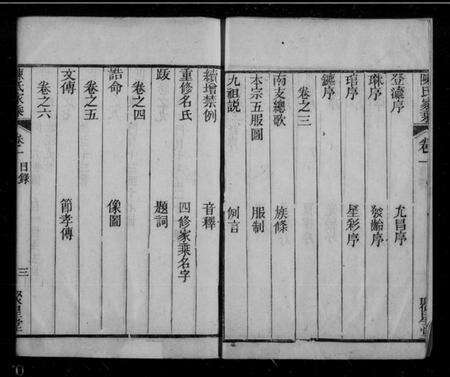 陳氏家乘 卷一
登瀛序 尤昌序
珠序 發齡序
琯序 星彩序
鍾序
卷之三
南支總歌 族條
本宗五服圖 服制
九祖說 例言
續增禁例 音釋
重修名氏 四修家乘名字
跋 題詞
卷之四
誥命 像圖
卷之五
文傳 節孝傳
卷之六
陳氏家乘 卷一 目錄 三